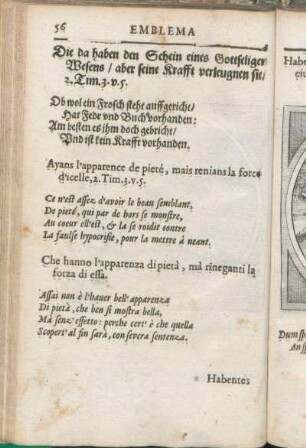 56 EMBLEMA
Die da haben den Schein eines Gottseliger
Wesens / aber seine Krafft verleugnen sie /
2. Tim. 3. v. 5.
Ob wol ein Frosch steht auffgericht /
Hat Fede vnd Buch vorhanden:
Am besten es jhm doch gebricht /
Vnd ist kein Krafft vorhanden.
Ayans l'apparence de pieté, mais renians la force
d'icelle, 2. Tim. 3. v. 5.
Ce n'est assez d'avoir le beau semblant,
De pieté, qui par de hors se monstre,
Au coeur ell'est, & la se roidit contre
La faulse hypocrisie, pour la mettre à neant.
Che hanno l'apparenza di pietà, mà rineganti la
forza di essa.
Assai non è l'hauer bell'apparenza
Di pietà, che ben si mostra bella,
Mà senz'effetto: perche cert' è che quella
Scopert' al fin sarà, con severa sentenza.
Habentes
Habe
eiu
Dum st
An s